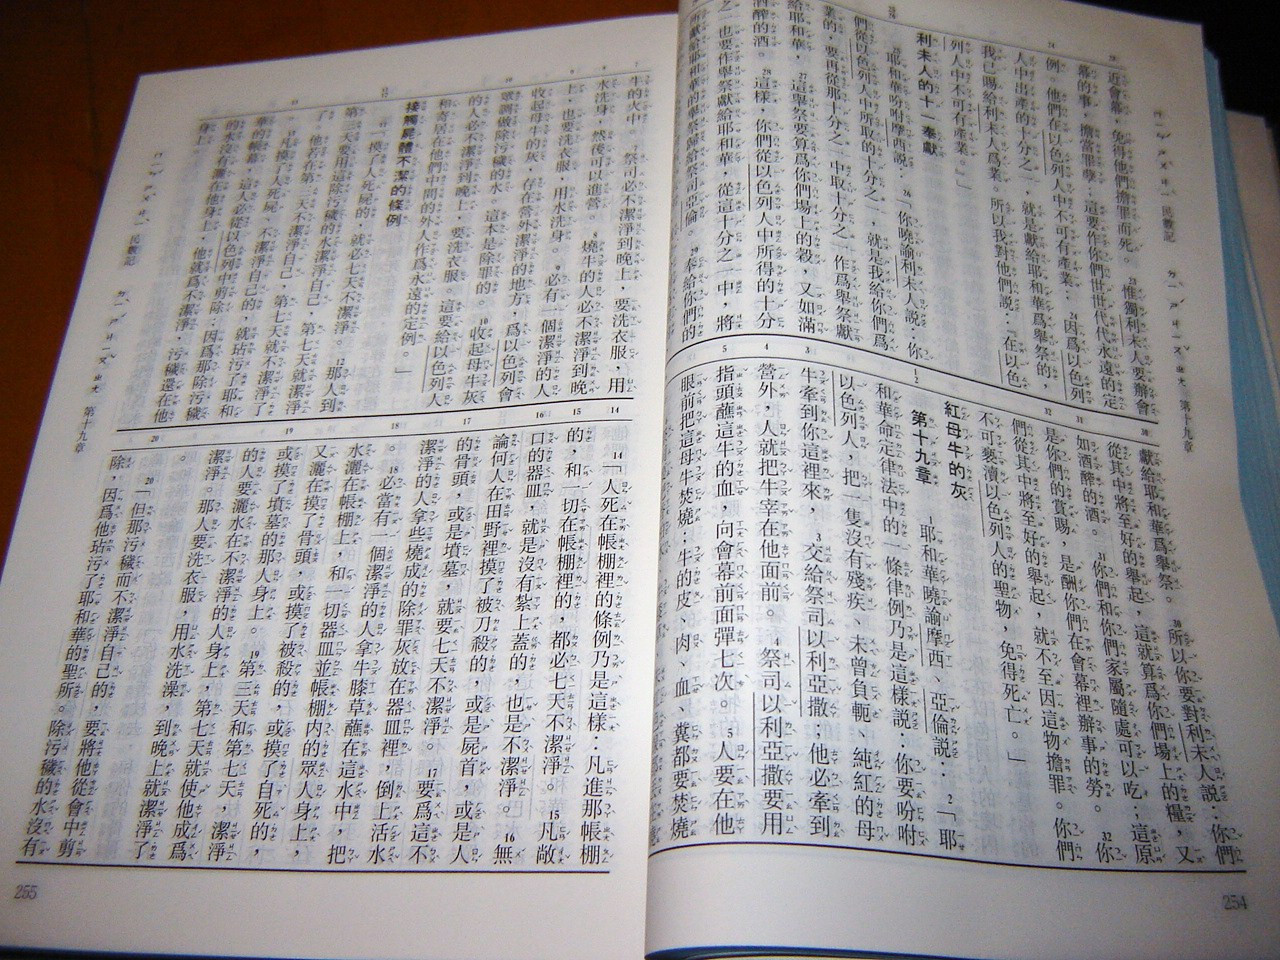 近會幕,免得他們擔罪而死。23惟獨利未人要辦會
幕的事,擔當罪孽;這要作你們世世代代永遠的定
例。他們在以色列人中不可有產業;24因爲以色列
人中出產的十分之一,就是獻給耶和華爲舉祭的,
我已賜給利未人爲業。所以我對他們說:『在以色
列人中不可有產業。』」
利未人的十一奉獻
25耶和華吩咐摩西說:26「你曉諭利未人說:你
們從以色列人中所取的十分之一,就是我給你們爲
業的,要再從那十分之一中取十分之一作爲舉祭獻
給耶和華,27這舉祭要算爲你們場上的穀,又如滿
酒醡的酒。28這樣,你們從以色列人中所得的十分
之一也要作舉祭獻給耶和華,從這十分之一中,將
所獻給耶和華的舉祭歸給祭司亞倫。29奉給你們的
獻給耶和華爲舉祭。30所以你要對利未人說:你們
從其中將至好的舉起,這就算爲你們場上的糧,又
如酒醡的酒。31你們和你們家屬隨處可以吃;這原
是你們的賞賜,是酬你們在會幕裡辦事的勞。32你
們從其中將至好的舉起,就不至因這物擔罪。你們
不可褻瀆以色列人的聖物,免得死亡。」
紅母牛的灰
第十九章 1耶和華曉諭摩西、亞倫說:2「耶
和華命定律法中的一條律例乃是這樣說:你要吩咐
以色列人,把一隻沒有殘疾、未曾負軛、純紅的母
牛牽到你這裡來,3交給祭司以利亞撒;他必牽到
營外,人就把牛宰在他面前。4祭司以利亞撒要用
指頭蘸這牛的血,向會幕前面彈七次。5人要在他
眼前把這母牛焚燒;牛的皮、肉、血、糞都要焚燒
民數記 第十九章
254
牛的火中。7祭司必不潔淨到晚上,要洗衣服,用
水洗身,然後可以進營。8燒牛的人必不潔淨到晚
上,也要洗衣服,用水洗身。9必有一個潔淨的人
收起母牛的灰,存在營外潔淨的地方,爲以色列會
眾調做除污穢的水。這本是除罪的。10收起母牛灰
的人必不潔淨到晚上,要洗衣服。這要給以色列人
和寄居在他們中間的外人作爲永遠的定例。」
接觸屍體不潔的條例
11「摸了人死屍的,就必七天不潔淨。12那人到
第三天要用這除污穢的水潔淨自己,第七天就潔淨
了。他若在第三天不潔淨自己,第七天就不潔淨了
。13凡摸了人死屍、不潔淨自己的,就玷污了耶和
華的帳幕,這人必從以色列中剪除;因爲那除污穢
的水沒有灑在他身上,他就爲不潔淨,污穢還在他
身上。
14「人死在帳棚裡的條例乃是這樣:凡進那帳棚
的,和一切在帳棚裡的,都必七天不潔淨。15凡敞
口的器皿,就是沒有紮上蓋的,也是不潔淨。16無
論何人在田野裡摸了被刀殺的,或是屍首,或是人
的骨頭,或是墳墓,就要七天不潔淨。17要爲這不
潔淨的人拿些燒成的除罪灰放在器皿裡,倒上活水
。18必當有一個潔淨的人拿牛膝草蘸在這水中,把
水灑在帳棚上,和一切器皿並帳棚內的眾人身上,
又灑在摸了骨頭,或摸了被殺的,或摸了自死的,
或摸了墳墓的那人身上。19第三天和第七天,潔淨
的人要灑水在不潔淨的人身上,第七天就使他成爲
潔淨。那人要洗衣服,用水洗澡,到晚上就潔淨了
。
20「但那污穢而不潔淨自己的,要將他從會中剪
除,因爲他玷污了耶和華的聖所。除污穢的水沒有
民數記 第十九章
255